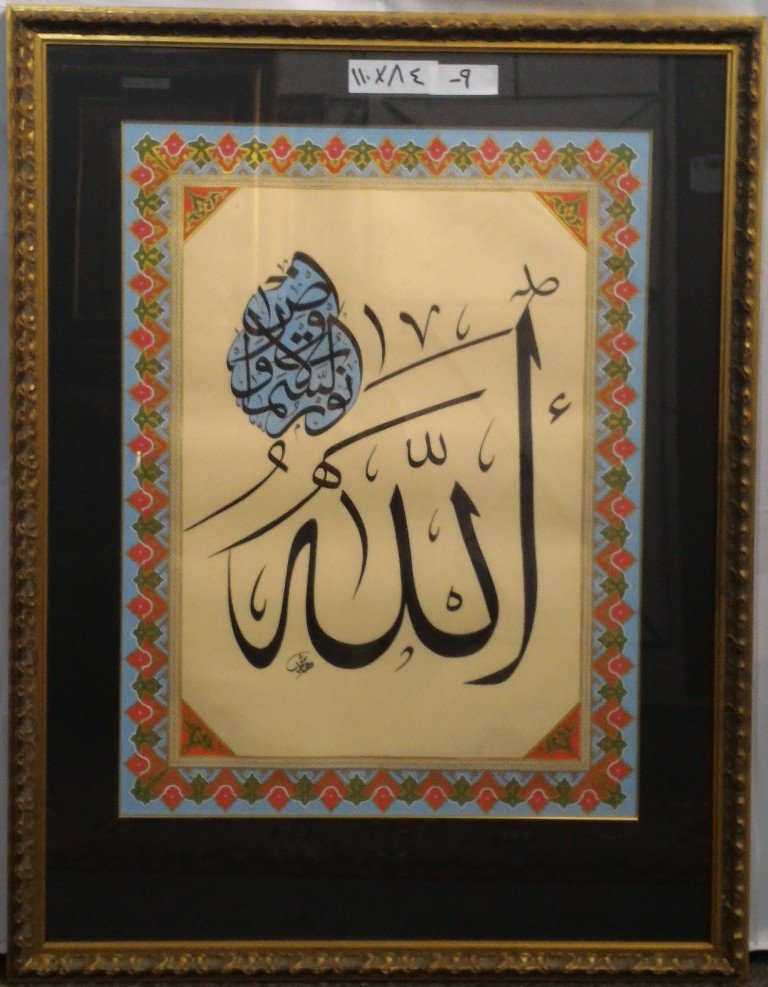 ٩- ١١٠X٨٤
ألله
نور السموات والأرض